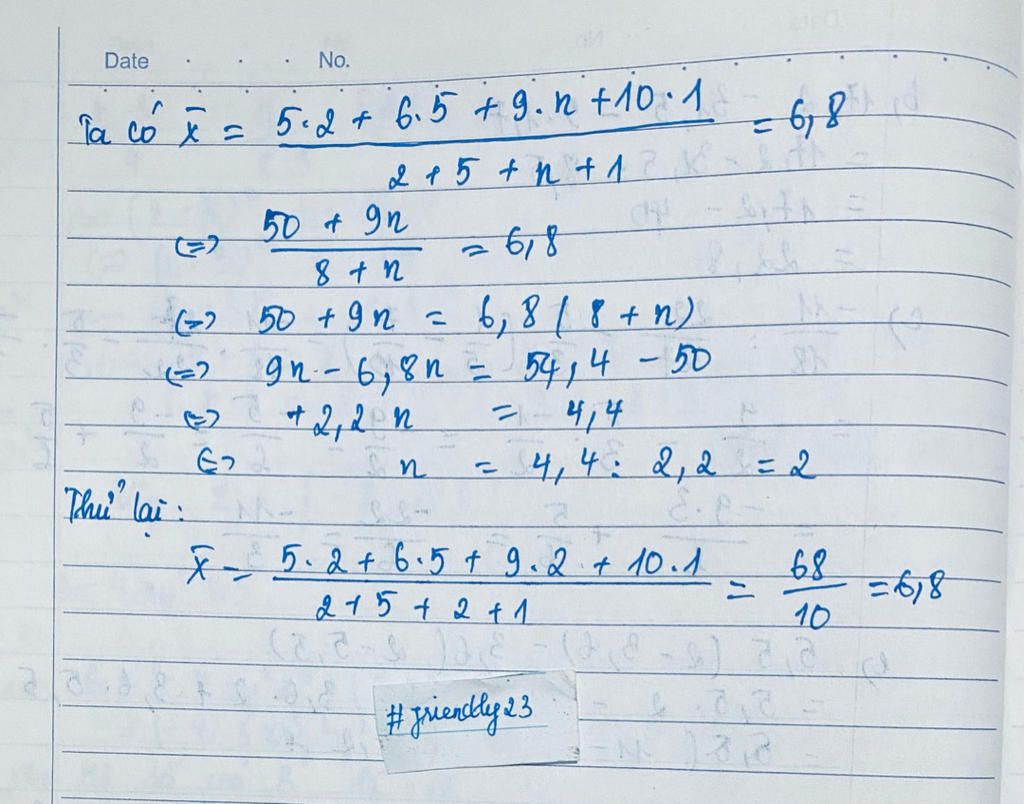 Date . . . No.
Ta có x̄ = (5.2 + 6.5 + 9.n + 10.1) / (2 + 5 + n + 1) = 6,8
(=) (50 + 9n) / (8 + n) = 6,8
(=) 50 + 9n = 6,8 (8 + n)
(=) 9n - 6,8n = 54,4 - 50
(=) +2,2n = 4,4
(=) n = 4,4 : 2,2 = 2
Thử lại :
x̄ = (5.2 + 6.5 + 9.2 + 10.1) / (2 + 5 + 2 + 1) = 68 / 10 = 6,8
#friendly23